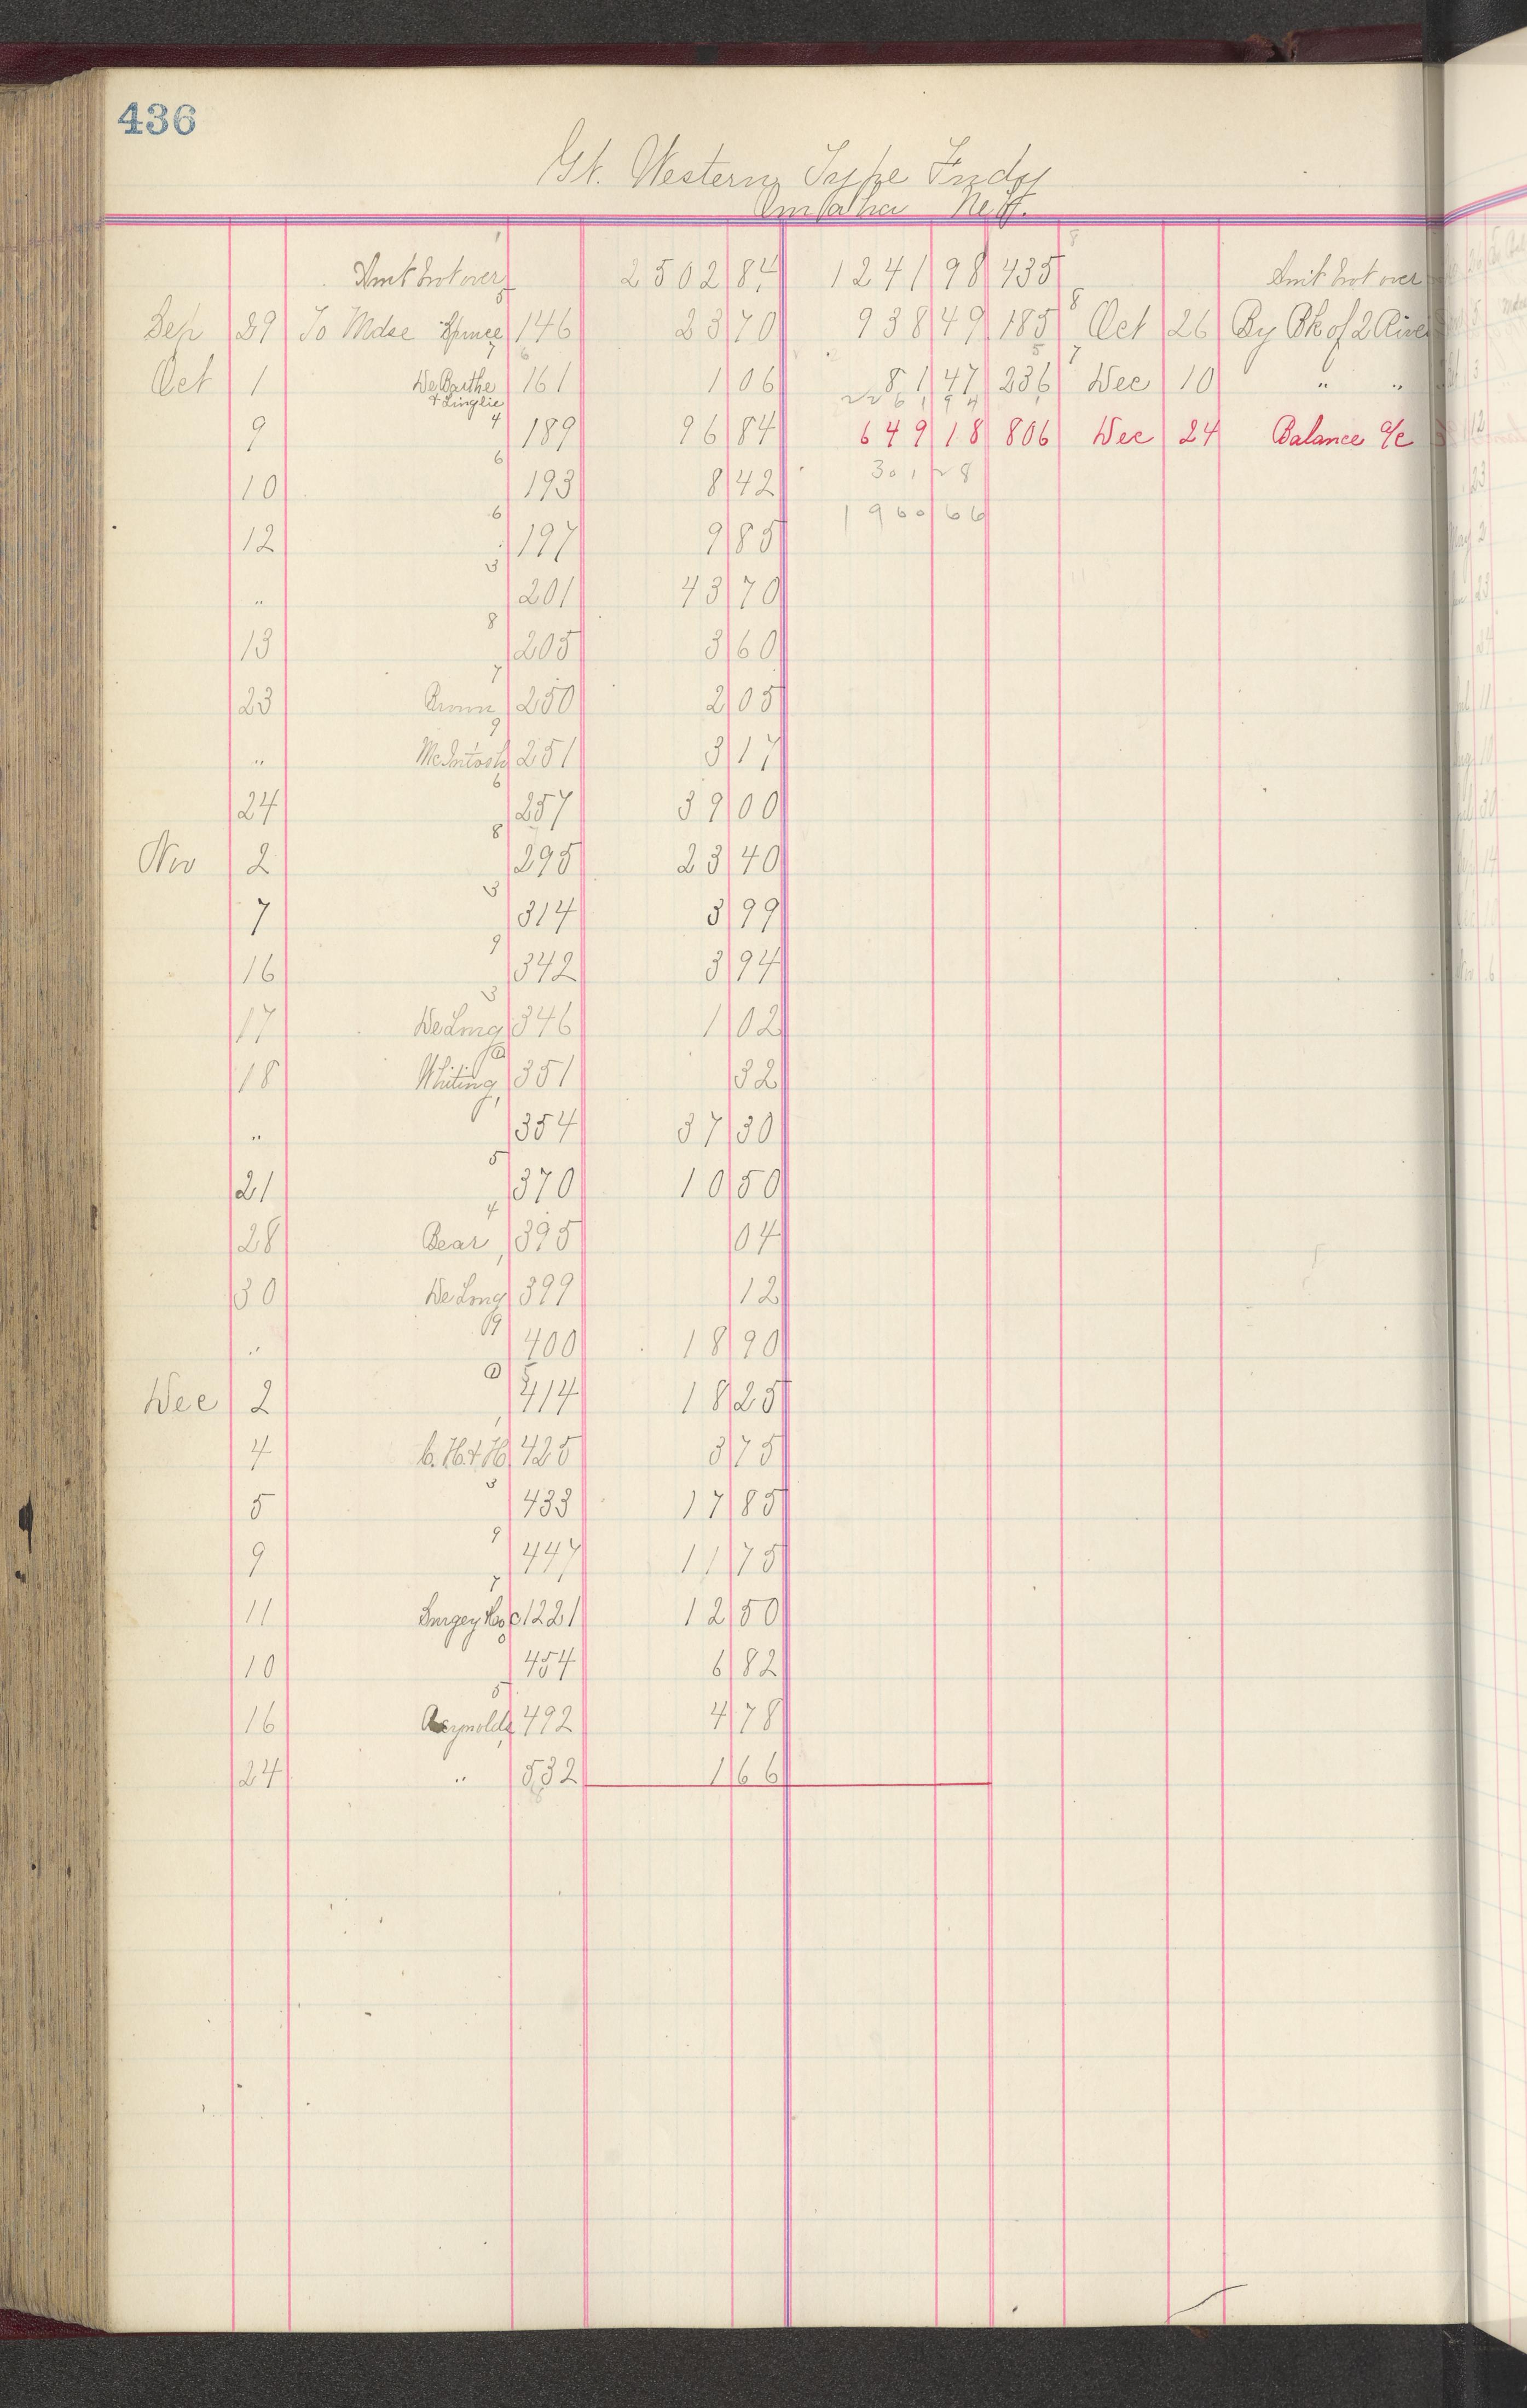 436
Gt. Western Type Fndy
Omaha Neb.
Amt brot over 2502 84 1241 98 435 Amt brot over
Sep 29 To Mdse Spruce 146 23 70 938 49 185 Oct 26 By Bk of 2 Rive
Oct 1 DeBarthe & Linglie 161 1 06 81 47 236 Dec 10 " "
2261 94
9 189 96 84 649 18 806 Dec 24 Balance a/c
10 193 8 42 301 28
12 197 9 85 1960 66
" 201 43 70
13 205 3 60
23 Brown 250 2 05
" McIntosh 251 3 17
24 257 39 00
Nov 2 295 23 40
7 314 3 99
16 342 3 94
17 DeLong 346 1 02
18 Whiting 351 32
" 354 37 30
21 370 10 50
28 Bear 395 04
30 DeLong 399 12
" 400 18 90
Dec 2 414 18 25
4 C. H. & H 425 3 75
5 433 17 85
9 447 11 75
11 C1221 12 50
10 454 6 82
16 Reynolds 492 4 78
24 " 532 1 66